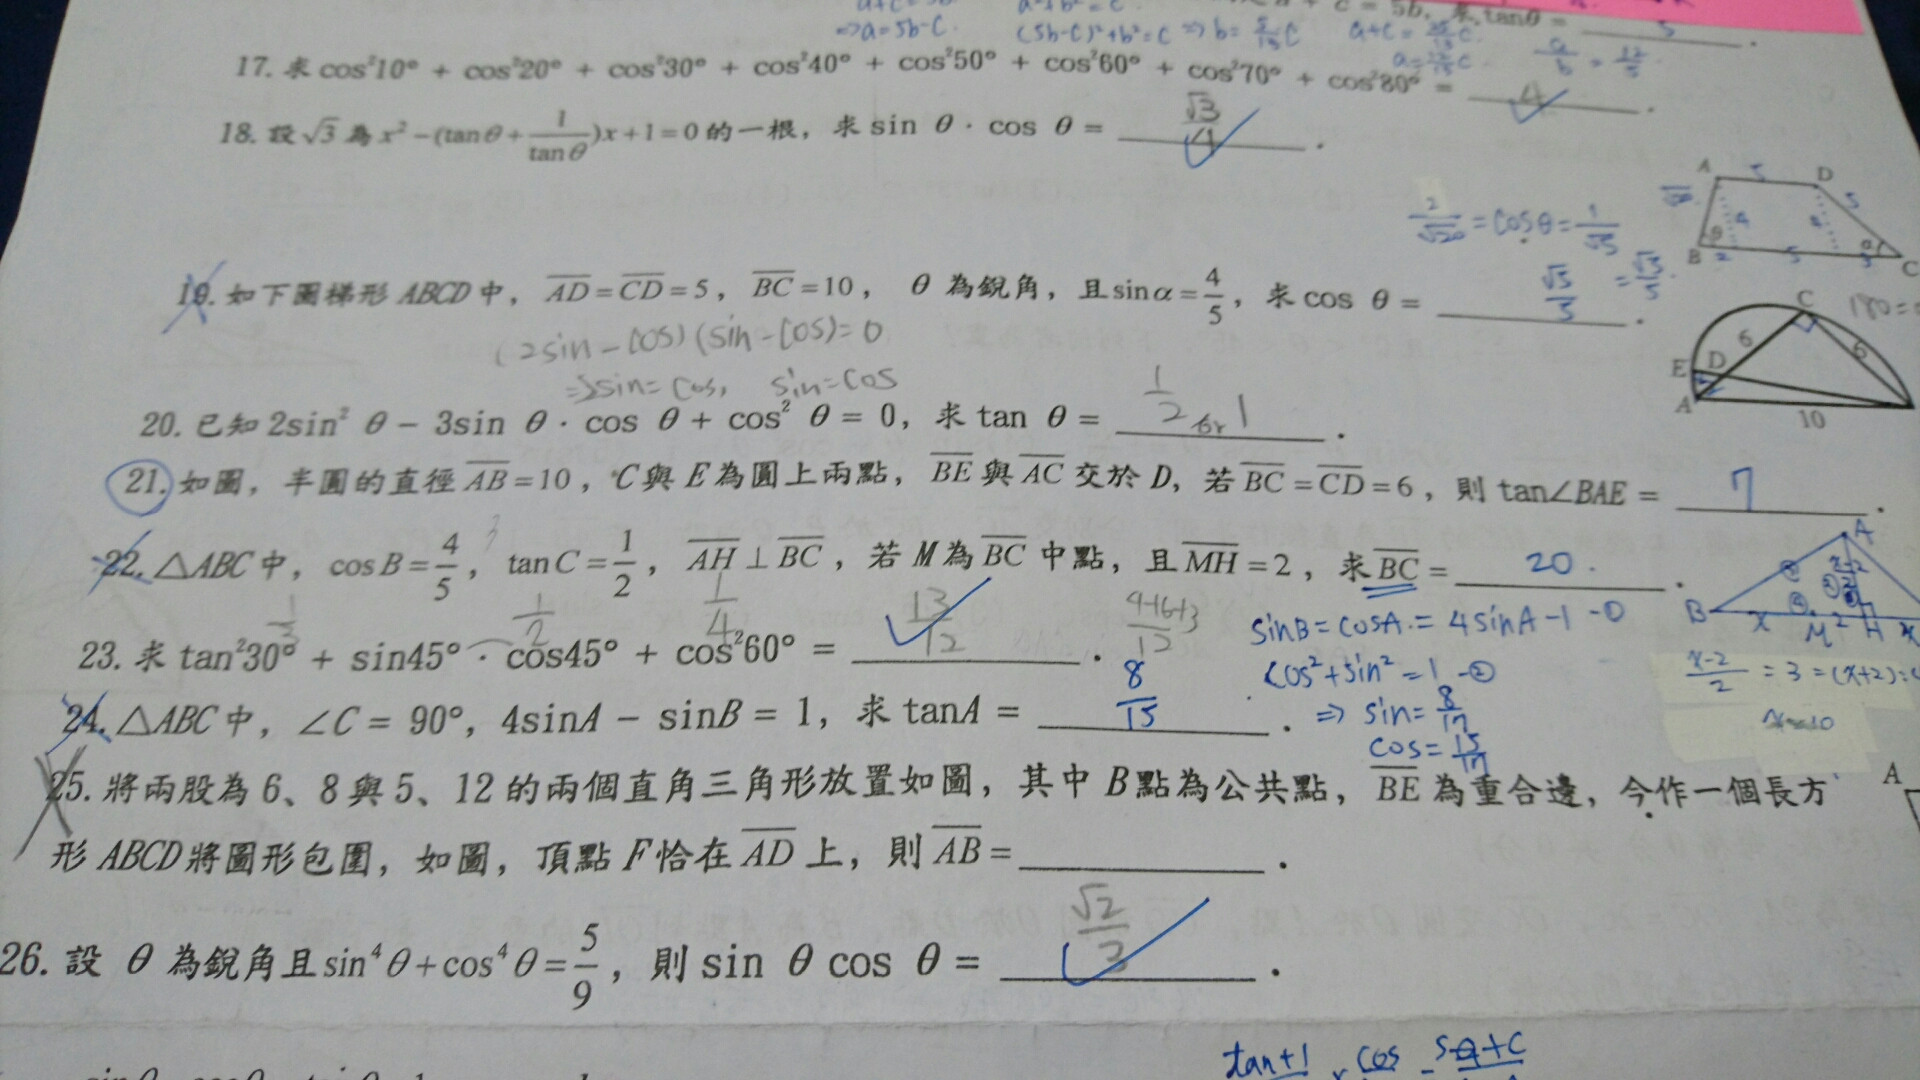 c = 5b, 求 tanθ =
⇒a=5b-c.
(5b-c)²+b²=c
17. 求 cos²10° + cos²20° + cos²30° + cos²40° + cos²50° + cos²60° + cos²70° + cos²80° = 4 .
18. 設 √3 為 x² -(tanθ + 1/tanθ)x+1=0 的一根, 求 sin θ · cos θ = √3/4 .
2/√20 = cosθ = 1/√5 = √5/5
A 5 D
5
4
B θ 2 5 3 α C
19. 如下圖梯形 ABCD 中, AD=CD=5, BC=10, θ 為銳角, 且 sinα=4/5, 求 cos θ = √5/5 .
C 180=
6 6
E D
A 10
(2sin-cos)(sin-cos)=0
⇒2sin=cos, sin=cos
20. 已知 2sin² θ - 3sin θ · cos θ + cos² θ = 0, 求 tan θ = 1/2 or 1 .
21. 如圖, 半圓的直徑 AB=10, C與 E 為圓上兩點, BE 與 AC 交於 D, 若 BC=CD=6, 則 tan∠BAE = 7 .
22. △ABC 中, cosB=4/5, tanC=1/2, AH⊥BC, 若 M 為 BC 中點, 且 MH=2, 求 BC = 20 .
A
B x M 2 H
1/3 1/2 1/4
23. 求 tan²30° + sin45° · cos45° + cos²60° = 13/12 .
4+6+3/12
sinB=cosA=4sinA-1 -①
cos²+sin²=1 -②
⇒ sin=8/17
cos=15/17
24. △ABC 中, ∠C = 90°, 4sinA - sinB = 1, 求 tanA = 8/15 .
25. 將兩股為 6、8 與 5、12 的兩個直角三角形放置如圖, 其中 B 點為公共點, BE 為重合邊, 今作一個長方
形 ABCD 將圖形包圍, 如圖, 頂點 F 恰在 AD 上, 則 AB= .
A
26. 設 θ 為銳角且 sin⁴θ+cos⁴θ=5/9, 則 sin θ cos θ = √2/3 .
tan+1